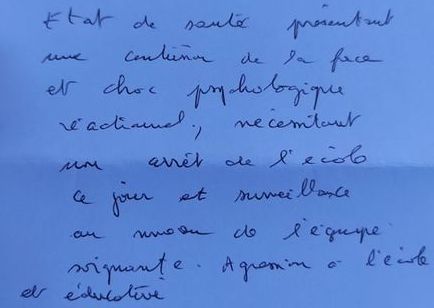 Etat de santé présentant
une contusion de la face
et choc psychologique
réactionnel, nécessitant
un arrêt de l'école
ce jour et surveillance
au niveau de l'équipe
soignante. Agression à l'école
et éducative